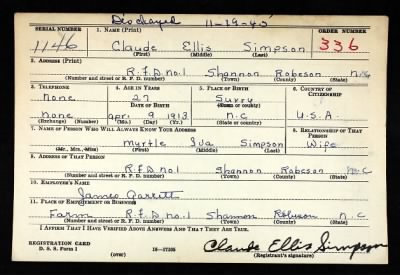 Discharged 11-19-45
SERIAL NUMBER 1. NAME (Print) ORDER NUMBER
1146 Claude Ellis Simpson 336
(First) (Middle) (Last)
2. ADDRESS (Print)
R.F.D. no.1 Shannon Robeson N.C.
(Number and street or R. F. D. number) (Town) (County) (State)
3. TELEPHONE 4. AGE IN YEARS 5. PLACE OF BIRTH 6. COUNTRY OF CITIZENSHIP
none 27 Surry
DATE OF BIRTH (Town or county)
none apr 9 1913 n.c U.S.A.
(Exchange) (Number) (Mo.) (Day) (Yr.) (State or country)
7. NAME OF PERSON WHO WILL ALWAYS KNOW YOUR ADDRESS 8. RELATIONSHIP OF THAT PERSON
myrtle Iva Simpson Wife
(Mr., Mrs., Miss) (First) (Middle) (Last)
9. ADDRESS OF THAT PERSON
R.F.D. no1 Shannon Robeson N.C
(Number and street or R. F. D. number) (Town) (County) (State)
10. EMPLOYER'S NAME
James Garrett
11. PLACE OF EMPLOYMENT OR BUSINESS
Farm R.F.D. no.1 Shannon Robeson n.c
(Number and street or R. F. D. number) (Town) (County) (State)
I AFFIRM THAT I HAVE VERIFIED ABOVE ANSWERS AND THAT THEY ARE TRUE.
REGISTRATION CARD
D. S. S. Form 1 16—17105 Claude Ellis Simpson
(over) (Registrant's signature)